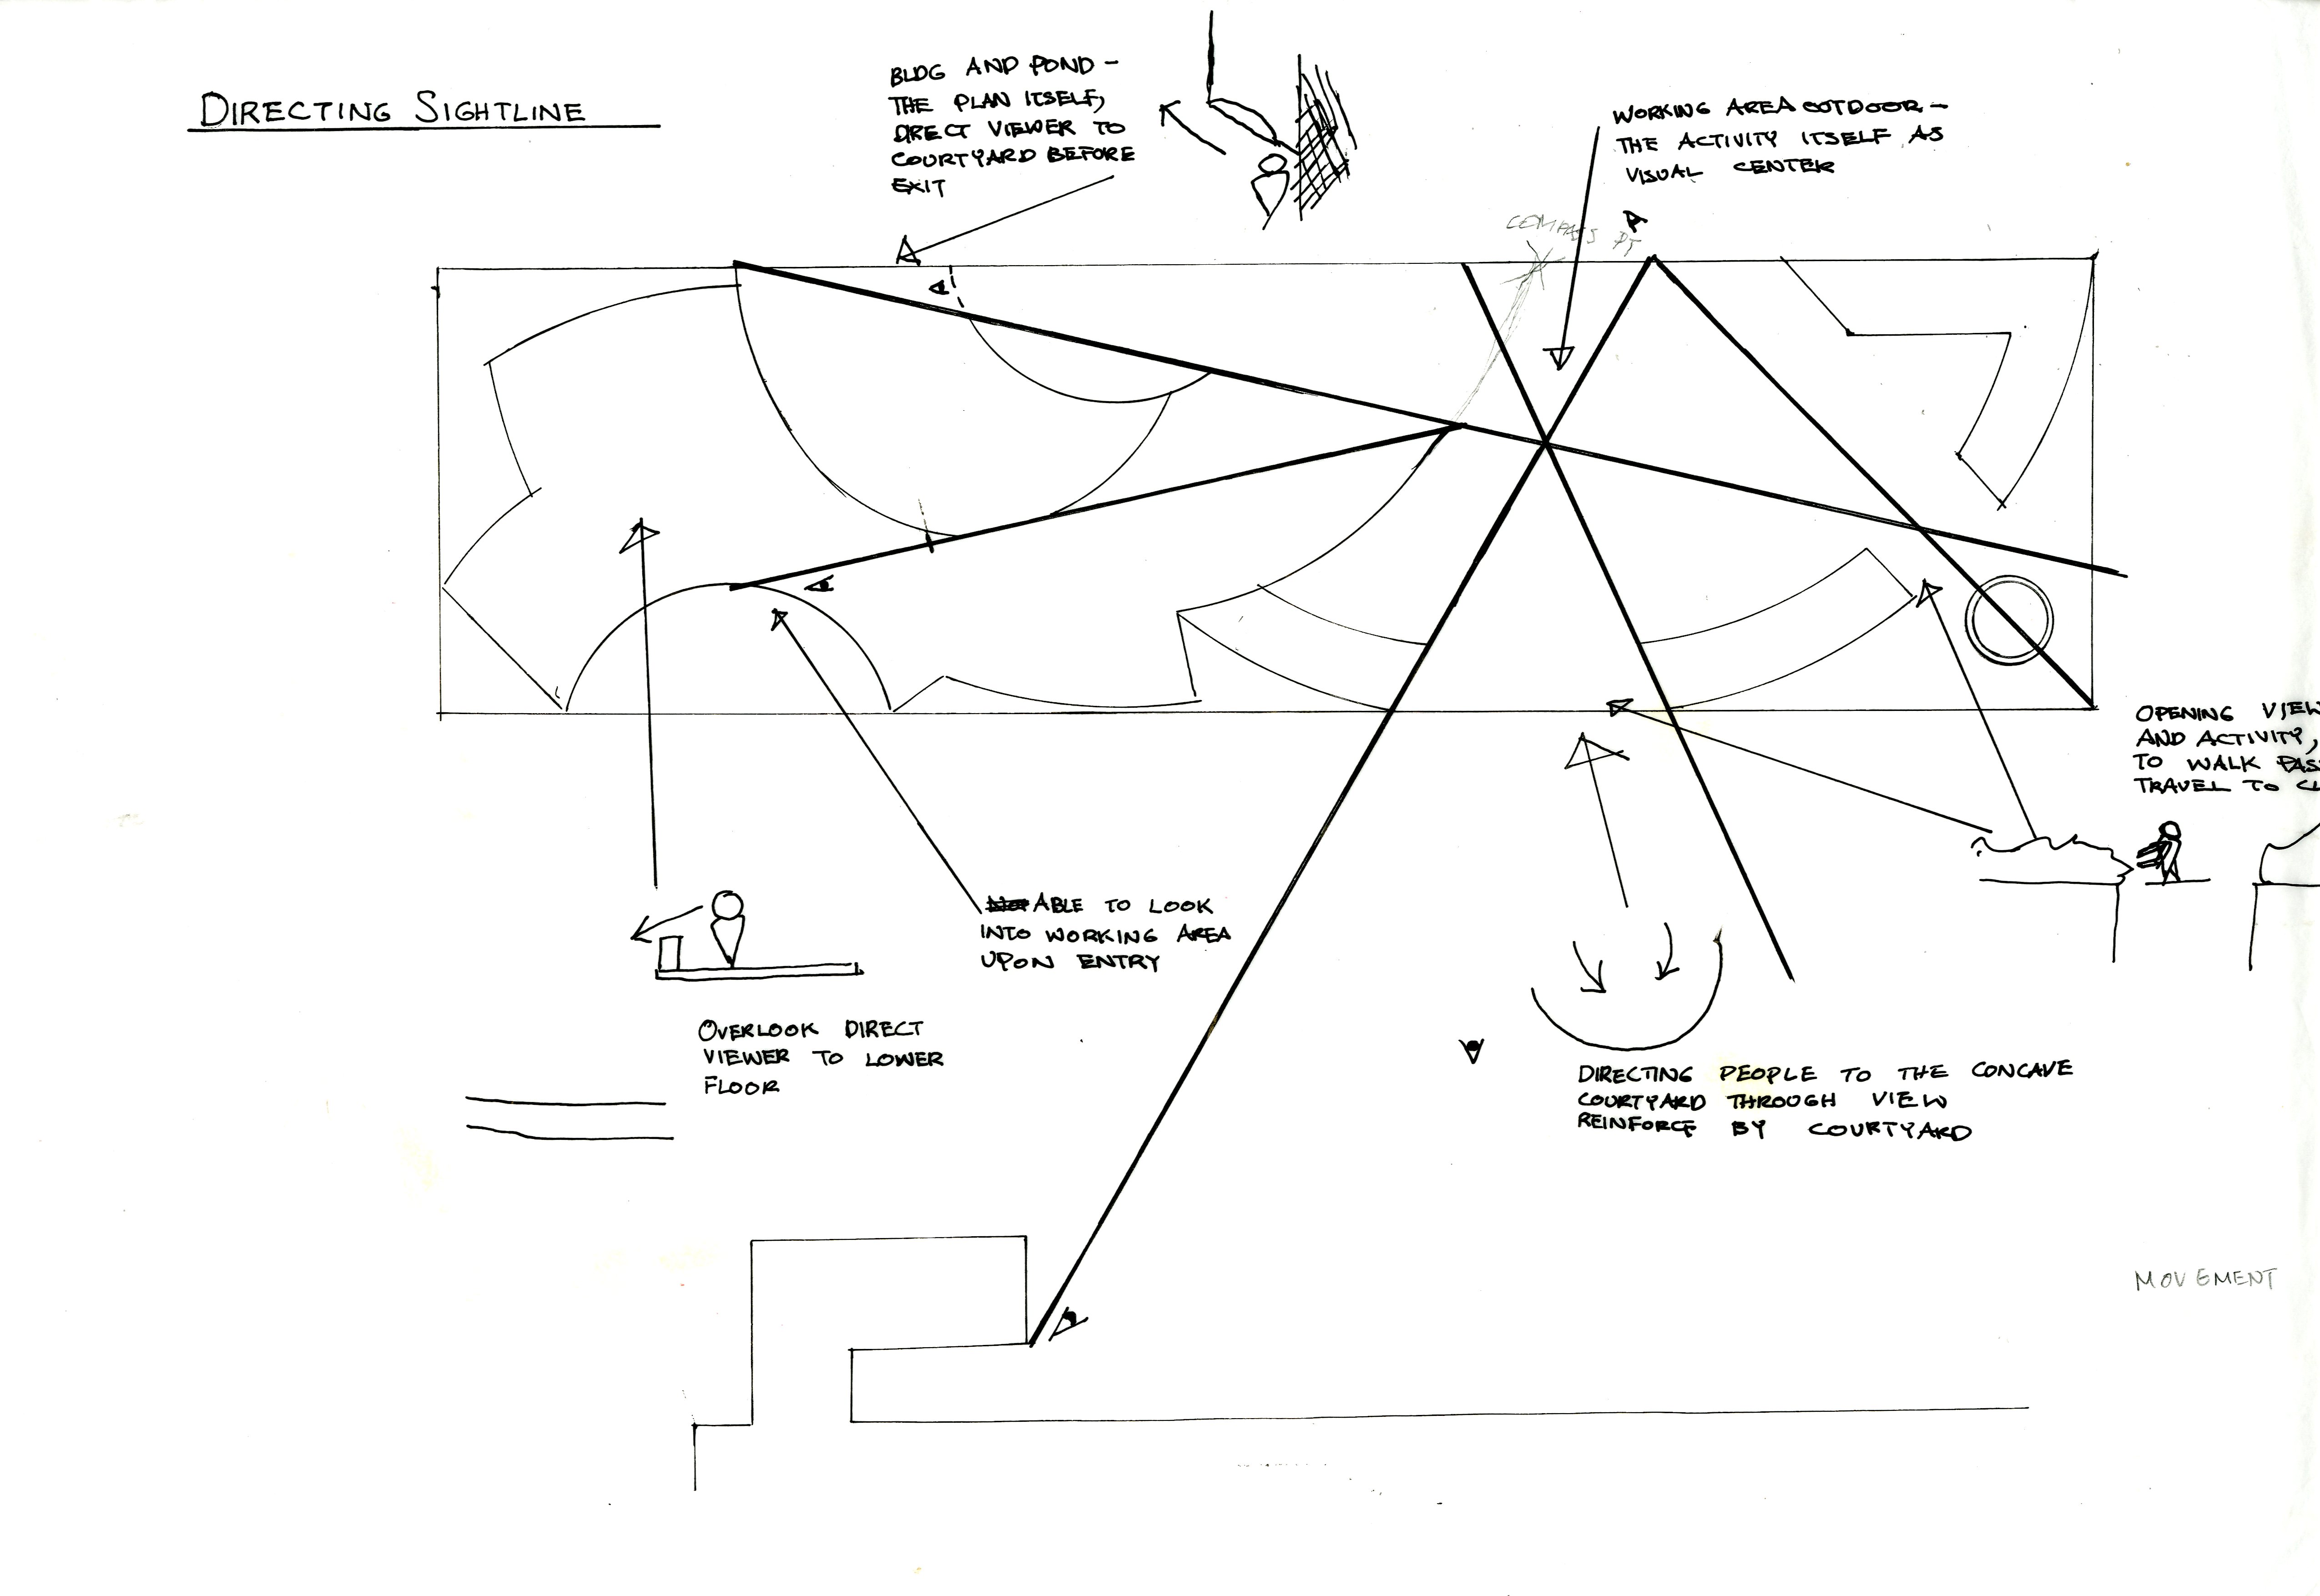 DIRECTING SIGHTLINE
BLDG AND POND -
THE PLAN ITSELF,
DIRECT VIEWER TO
COURTYARD BEFORE
EXIT
WORKING AREA OUTDOOR -
THE ACTIVITY ITSELF AS
VISUAL CENTER
COMPASS PT
OPENING VIEW
AND ACTIVITY,
TO WALK PAS
TRAVEL TO CL
ABLE TO LOOK
INTO WORKING AREA
UPON ENTRY
OVERLOOK DIRECT
VIEWER TO LOWER
FLOOR
DIRECTING PEOPLE TO THE CONCAVE
COURTYARD THROUGH VIEW
REINFORCE BY COURTYARD
MOVEMENT